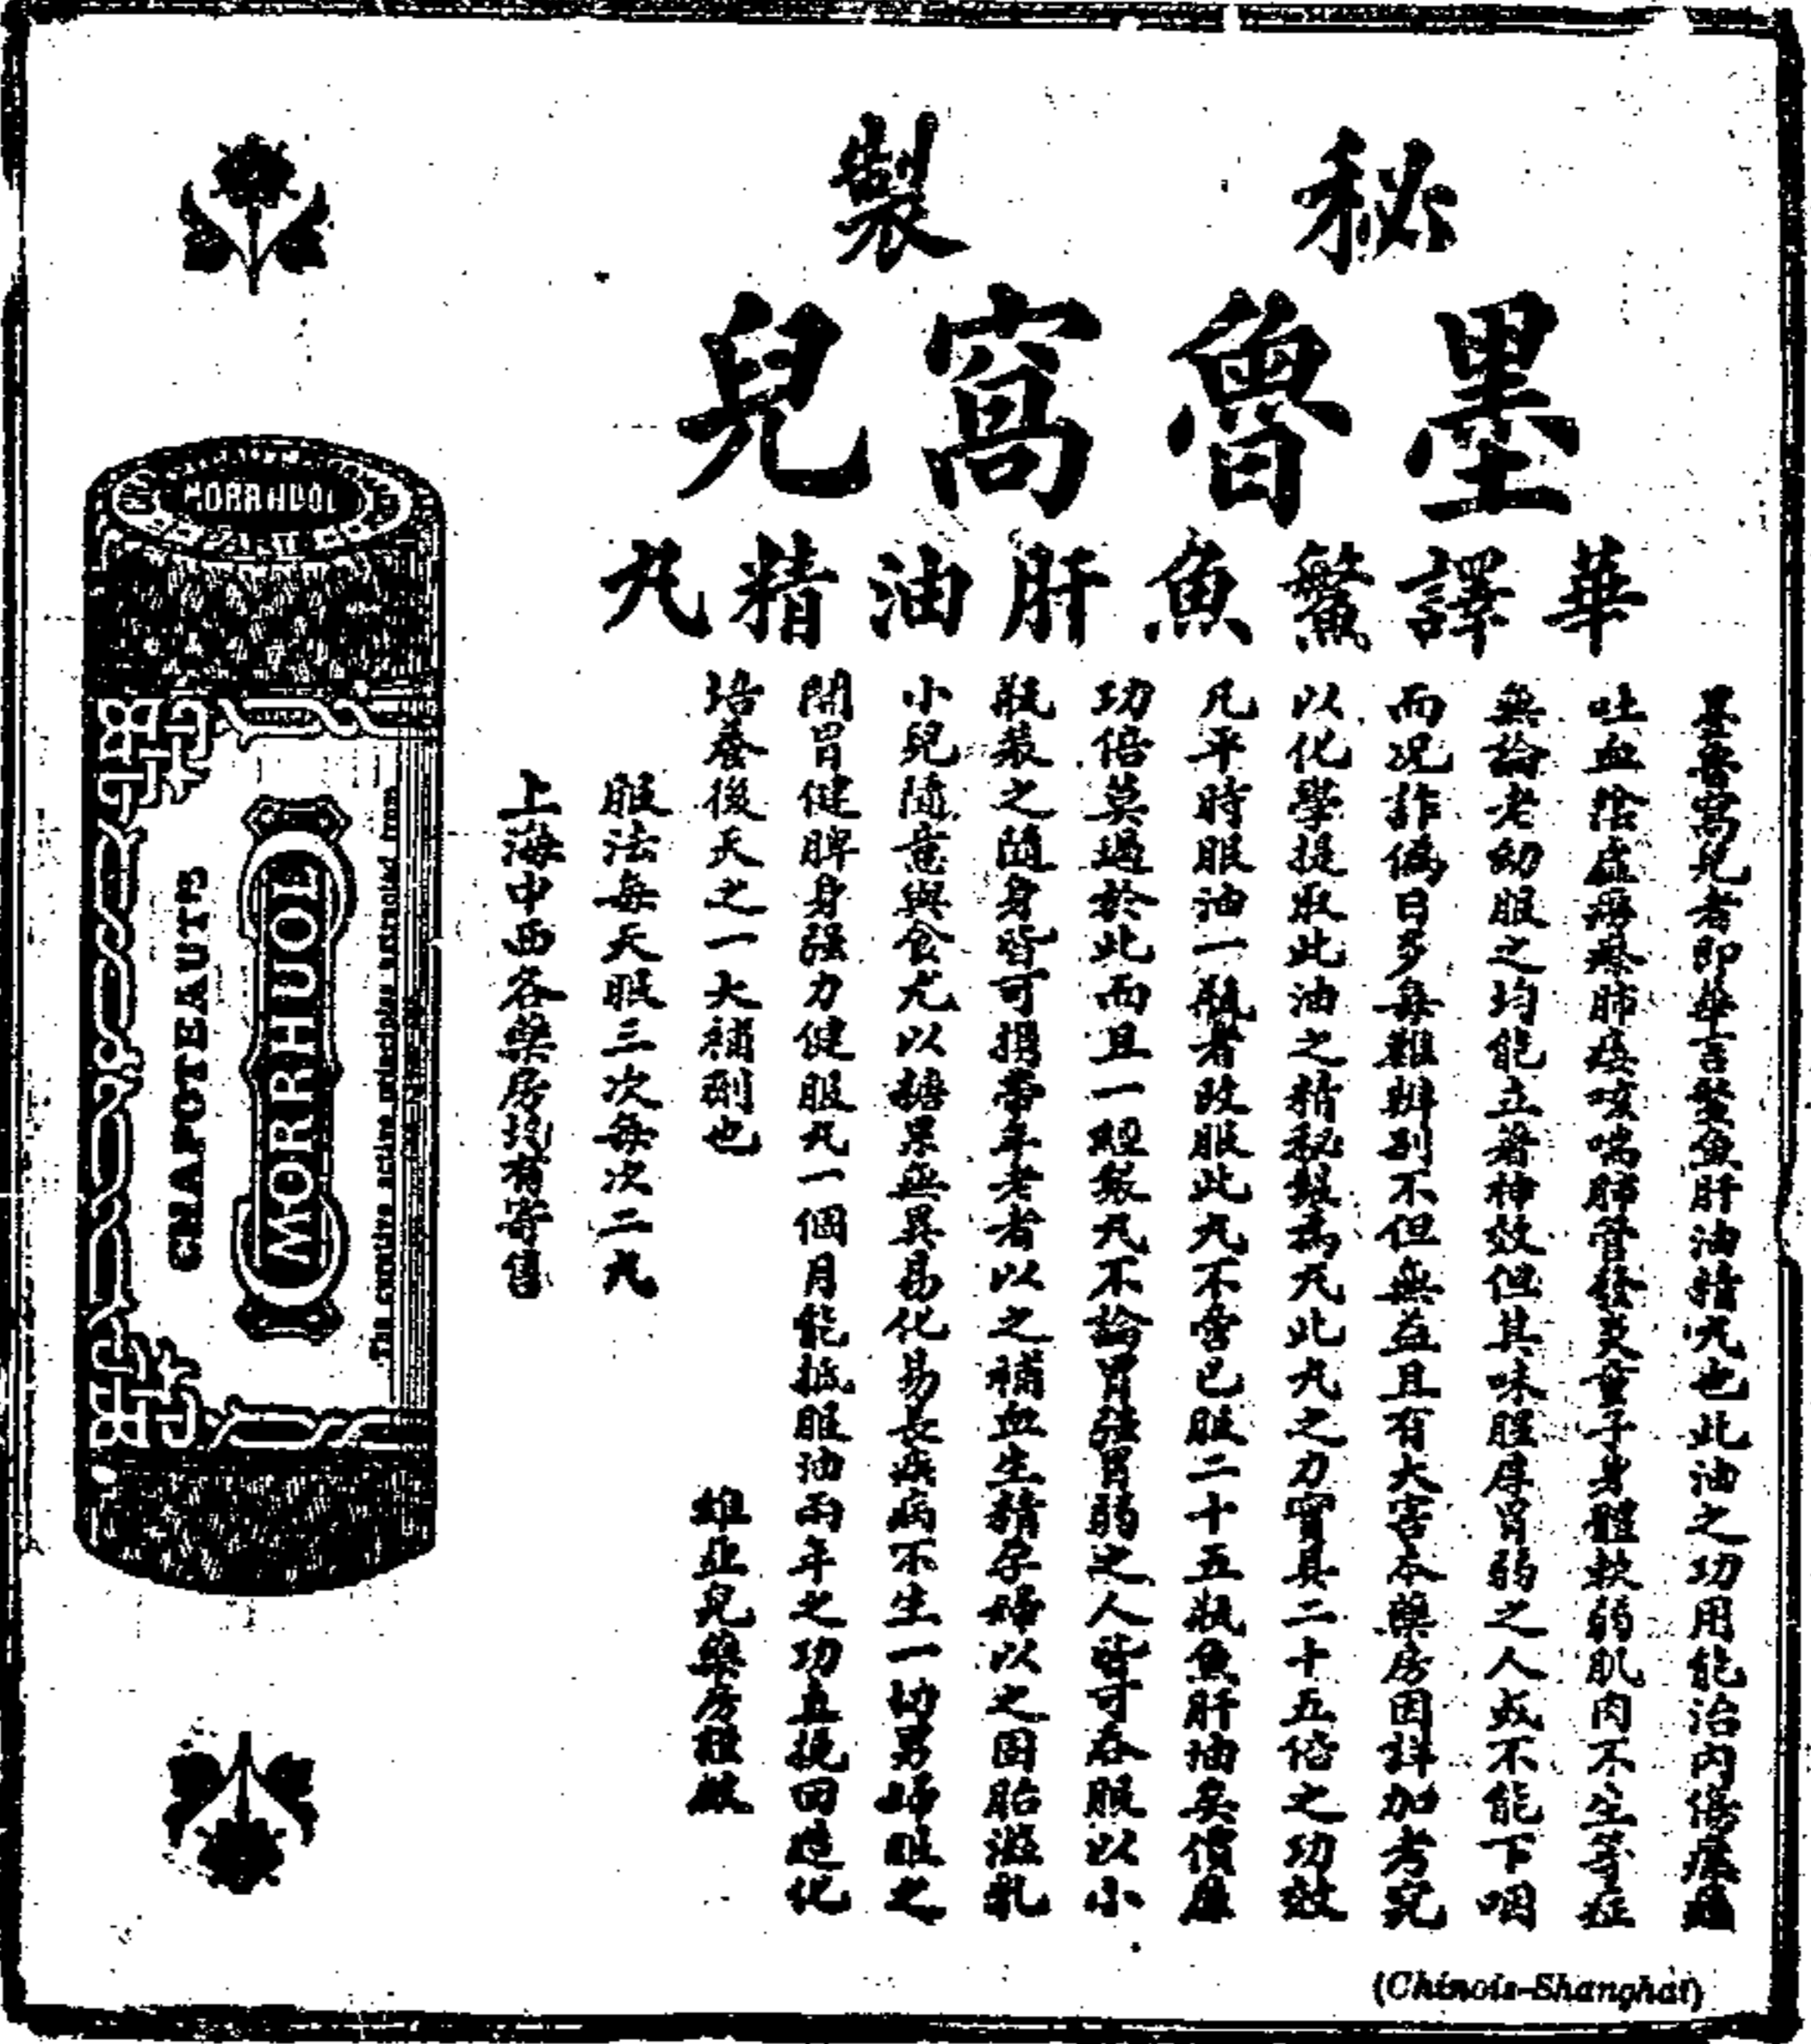 秘製
墨魯窩兒
華譯鱉魚肝油精丸
墨魯窩兒者即華言鱉魚肝油精丸也此油之功用能治內傷
吐血陰虛癆瘵肺痿咳喘肺管發炎童子身體軟弱肌肉不生等症
無論老幼服之均能立著神效但其味腥厚胃弱之人或不能下咽
而況詐偽日多每難辨別不但無益且有大害本藥房因詳加考究
以化學提取此油之精秘製為丸此丸之力實具二十五倍之功效
凡平時服油一瓶者改服此丸不啻已服二十五瓶魚肝油矣價廉
功倍莫過於此而且一經製丸不論胃強胃弱之人皆可吞服以小
瓶裝之隨身皆可攜帶年老者以之補血生精孕婦以之固胎滋乳
小兒隨意與食尤以糖果無異易化易長疾病不生一切男婦服之
開胃健脾身強力健服丸一個月能抵服油兩年之功直挽回造化
培養後天之一大補劑也
維亞兒藥房
服法每天服三次每次二丸
上海中西各藥房均有寄售
MORRHUOL
CHAPOTEAUT'S
MORRHUOL
The curative active principles extracted from
(Chinois-Shanghai)